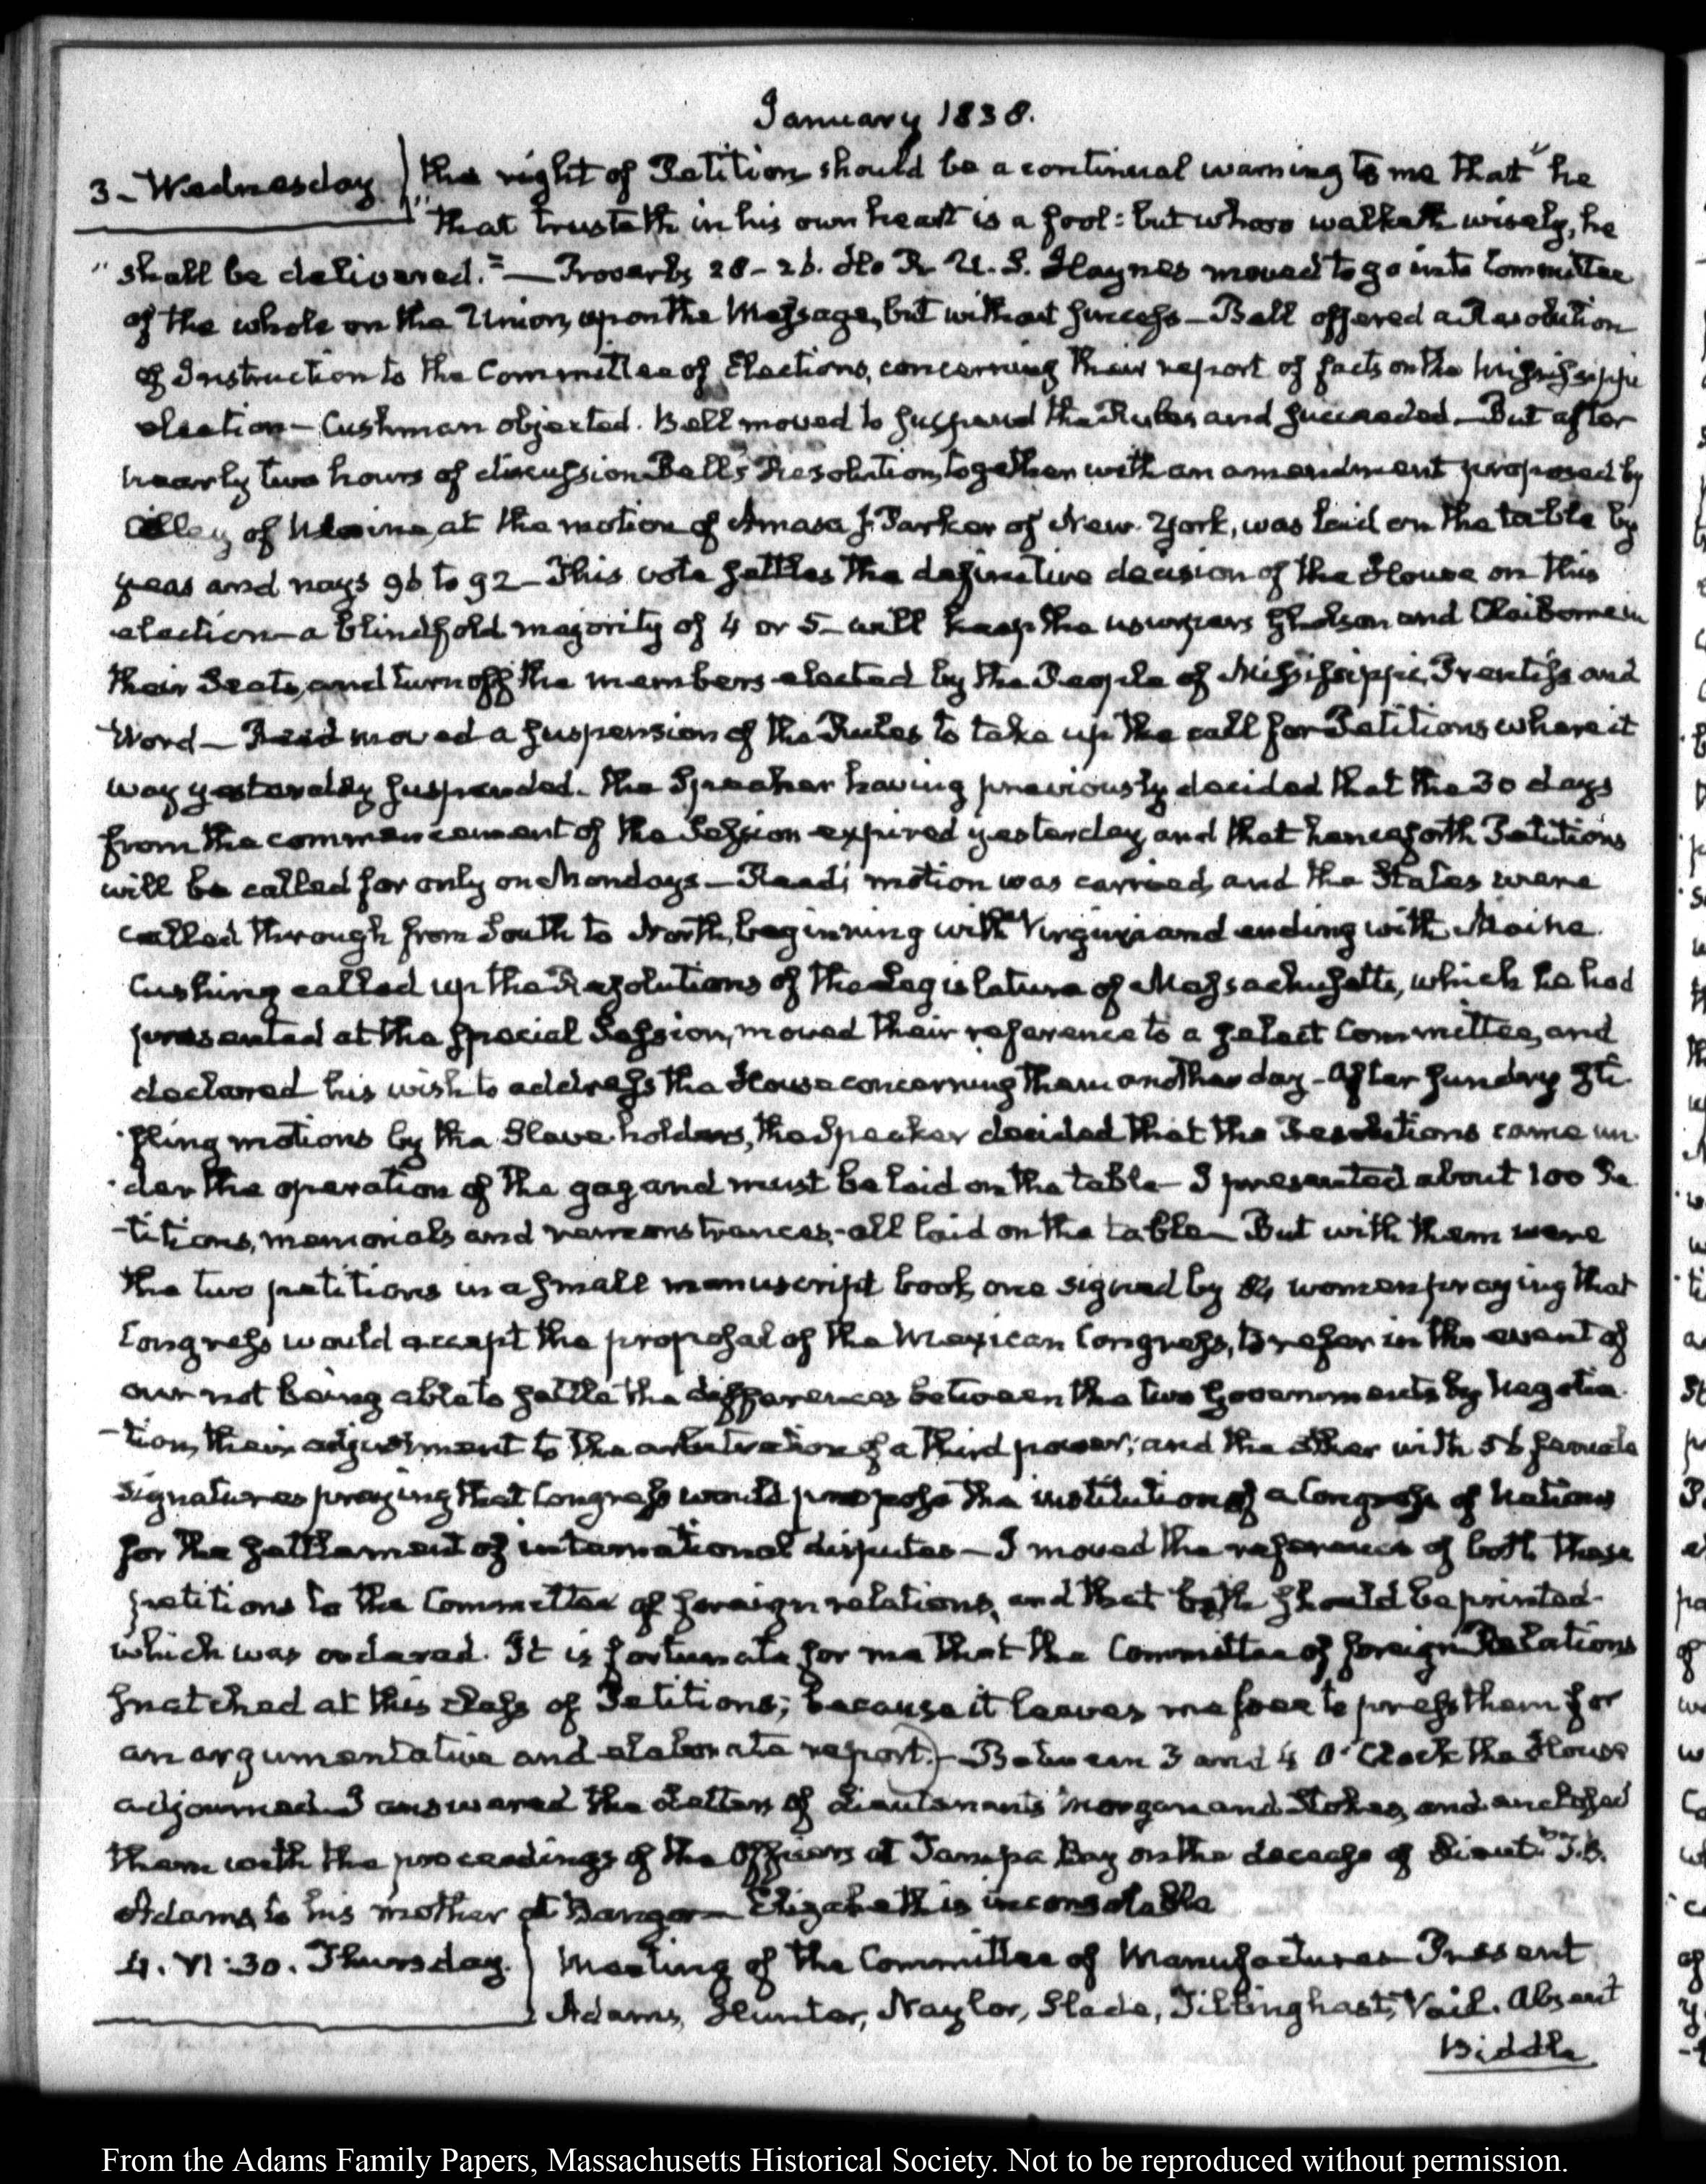 January 1838.
3 - Wednesday } the right of Petition should be a continual warning to me that "he
"that trusteth in his own heart is a fool: but whoso walketh wisely, he
"shall be delivered." — Proverbs 28-26. Ho R. U.S. Haynes moved to go into Committee
of the whole on the Union, upon the Message, but without success — Bell offered a Resolution
of Instruction to the Committee of Elections, concerning their report of facts on the Mississippi
election — Cushman objected. Bell moved to suspend the Rules and succeeded — But after
nearly two hours of discussion Bell's Resolution, together with an amendment proposed by
Cilley of Maine, at the motion of Amasa J. Parker of New-York, was laid on the table by
yeas and nays 96 to 92 — This vote settles the definitive decision of the House on this
election — a blindfold majority of 4 or 5 — will keep the usurpers Gholson and Claiborne in
their Seats, and turn off the members elected by the People of Mississippi, Prentiss and
Word — Read moved a suspension of the Rules to take up the call for Petitions where it
was yesterday suspended. The Speaker having previously decided that the 30 days
from the commencement of the Session expired yesterday, and that henceforth Petitions
will be called for only on Mondays — Read's motion was carried, and the States were
called through from South to North, beginning with Virginia and ending with Maine.
Cushing called up the Resolutions of the Legislature of Massachusetts, which he had
presented at the special Session, moved their reference to a select Committee, and
declared his wish to address the House concerning them another day — After sundry sti-
fling motions by the Slave-holders, the Speaker decided that the Resolutions came un-
der the operation of the gag and must be laid on the table — I presented about 100 Pe-
-titions, memorials and remonstrances — all laid on the table — But with them were
the two petitions in a small manuscript book, one signed by 84 women praying that
Congress would accept the proposal of the Mexican Congress, to refer in the event of
our not being able to settle the differences between the two Governments by Negotia-
-tion, their adjustment to the arbitration of a third power; and the other with 56 female
signatures praying that Congress would propose the institution of a Congress of Nations
for the settlement of international disputes — I moved the reference of both these
petitions to the Committee of foreign relations, and that both should be printed —
which was ordered. It is fortunate for me that the Committee of foreign Relations
snatched at this class of Petitions; because it leaves me free to press them for
an argumentative and elaborate report.) — Between 3 and 4 O'Clock the House
adjourned. I answered the Letters of Lieutenants Morgan and Stokes, and enclosed
them with the proceedings of the Officers at Tampa Bay on the decease of Lieut. T.B.
Adams, to his mother at Bangor — Elizabeth is inconsolable
4. VI:30. Thursday. } Meeting of the Committee of Manufactures — Present
Adams, Hunter, Naylor, Slade, Tillinghast, Vail. Absent
Biddle
From the Adams Family Papers, Massachusetts Historical Society. Not to be reproduced without permission.